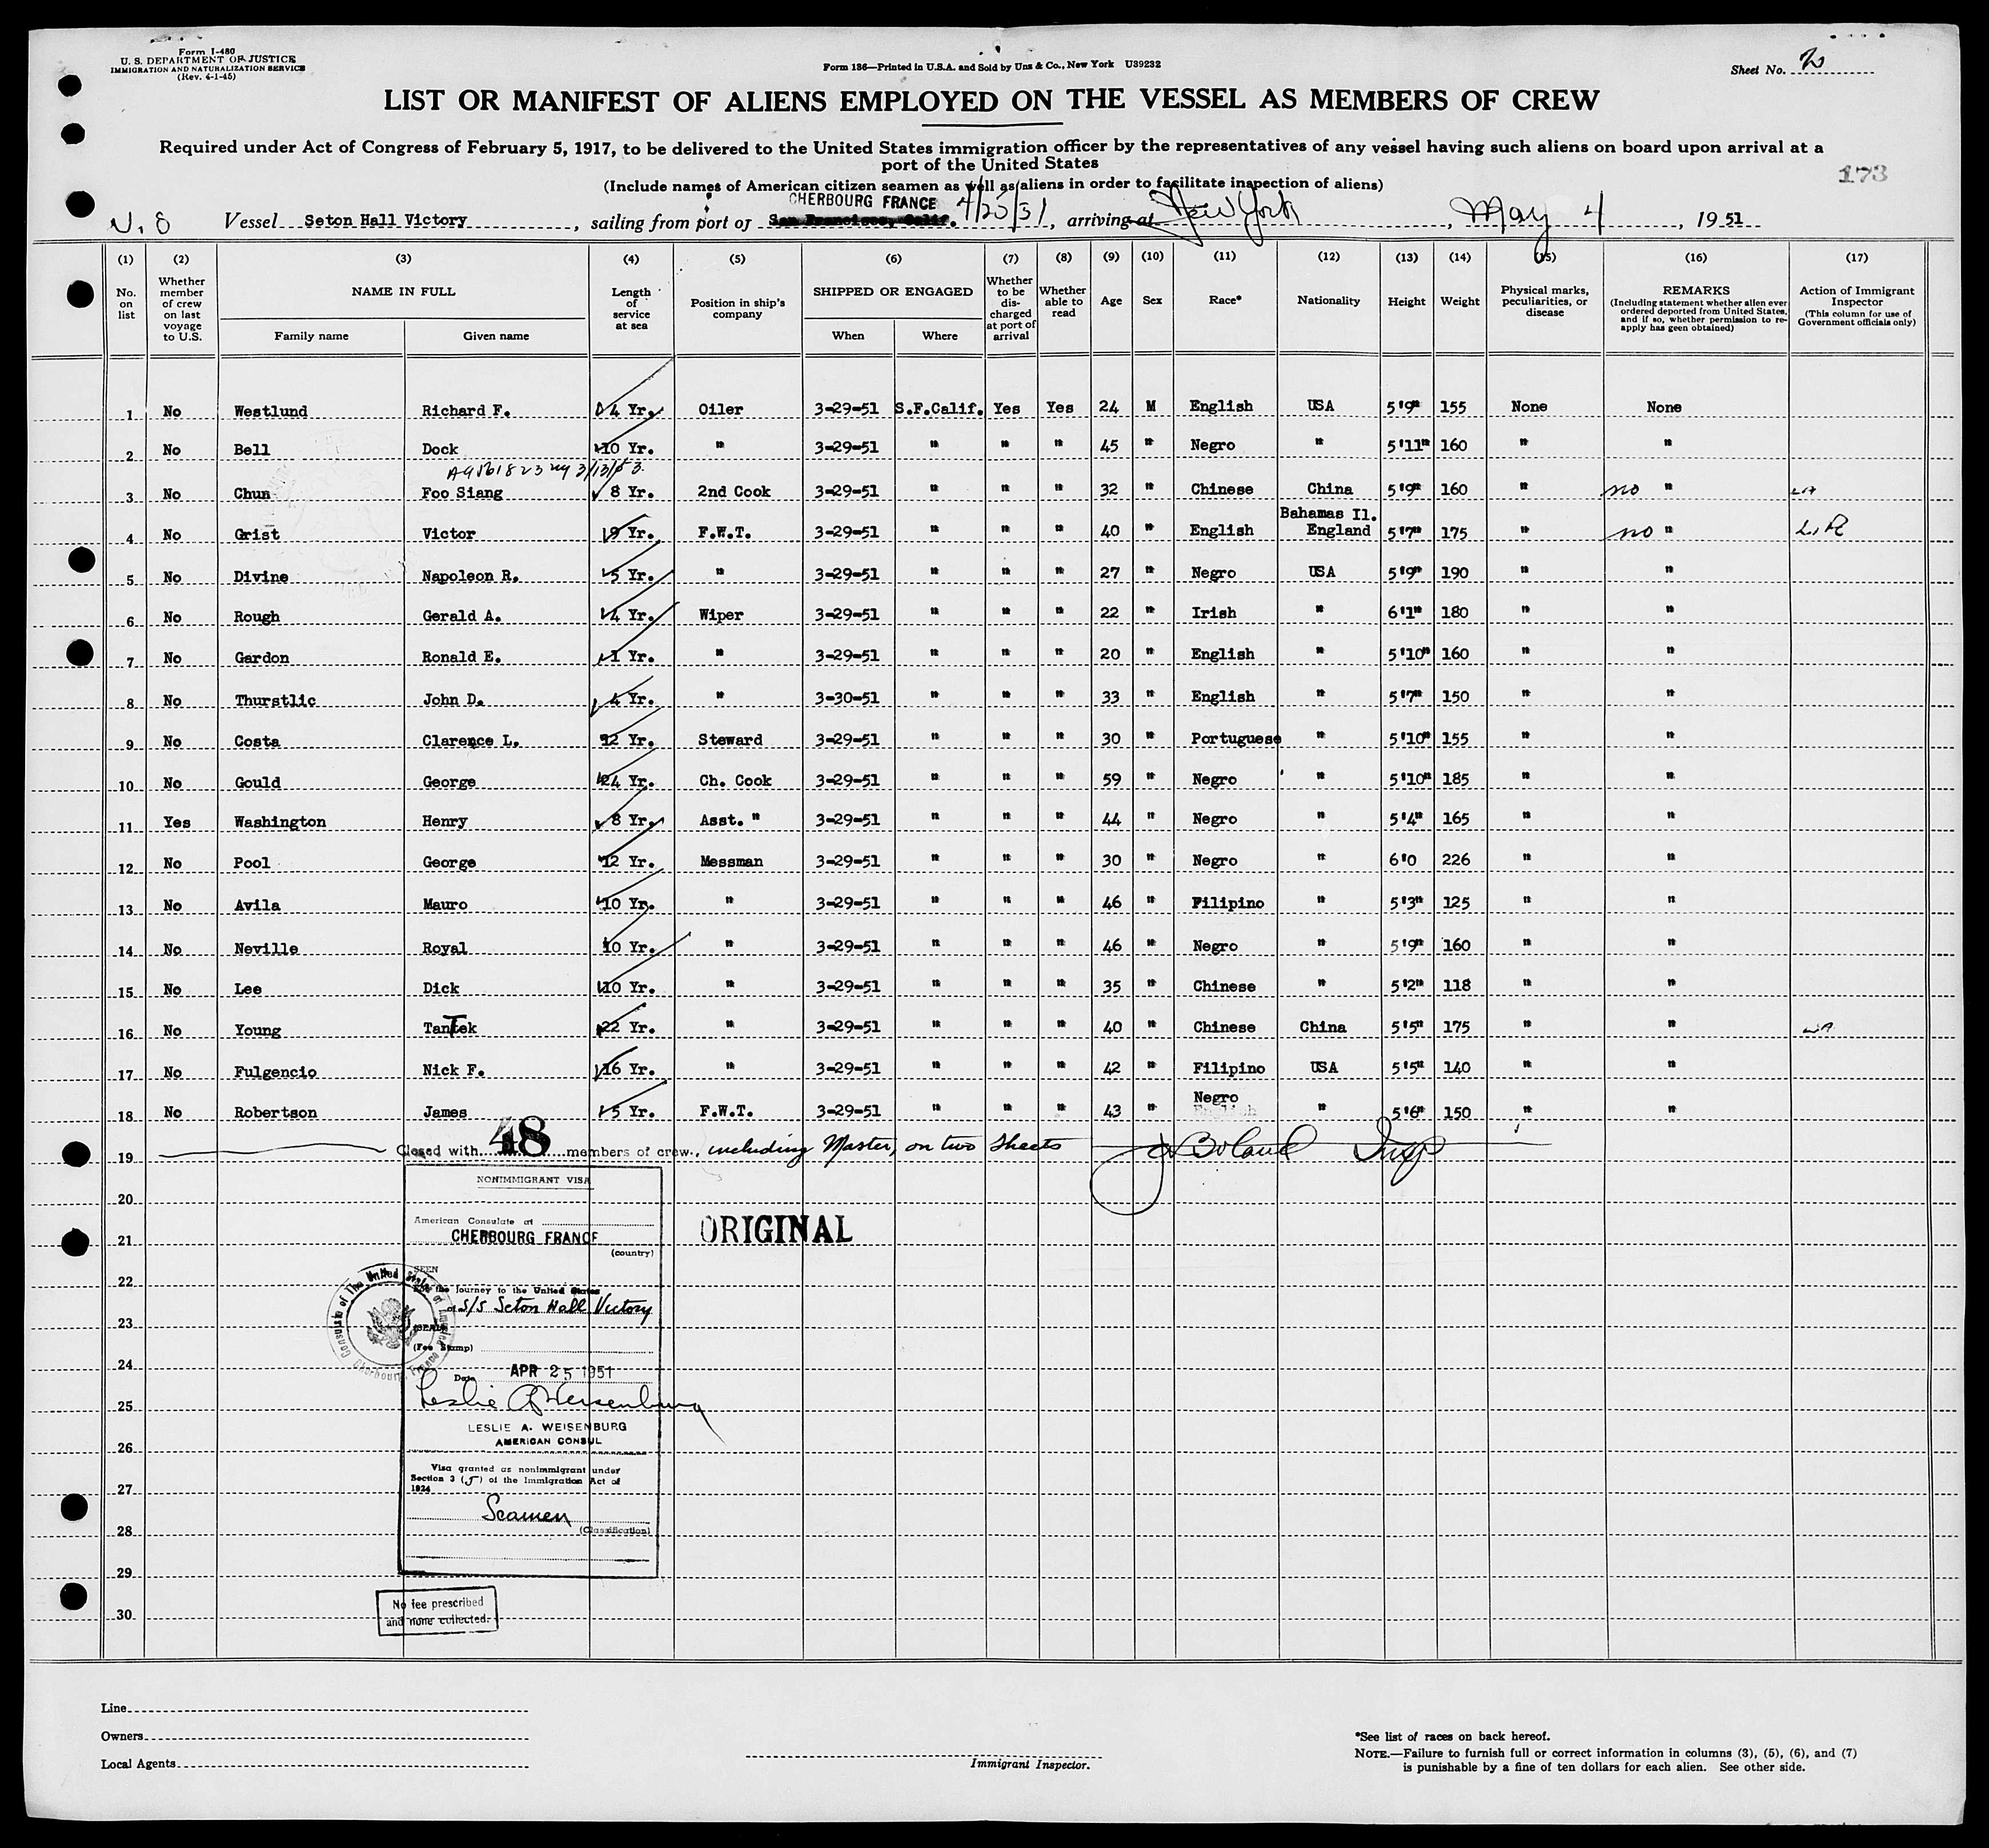 Form I-480
U. S. DEPARTMENT OF JUSTICE
IMMIGRATION AND NATURALIZATION SERVICE
(Rev. 4-1-45)
Form 136—Printed in U.S.A. and Sold by Unz & Co., New York U39232
Sheet No. 2
LIST OR MANIFEST OF ALIENS EMPLOYED ON THE VESSEL AS MEMBERS OF CREW
Required under Act of Congress of February 5, 1917, to be delivered to the United States immigration officer by the representatives of any vessel having such aliens on board upon arrival at a
port of the United States
173
(Include names of American citizen seamen as well as aliens in order to facilitate inspection of aliens)
CHERBOURG FRANCE 4/25/51
Vessel Seton Hall Victory, sailing from port of San Francisco, Calif., arriving at New York, May 4, 1951
(1) (2) (3) (4) (5) (6) (7) (8) (9) (10) (11) (12) (13) (14) (15) (16) (17)
No. on list | Whether member of crew on last voyage to U.S. | NAME IN FULL Family name Given name | Length of service at sea | Position in ship's company | SHIPPED OR ENGAGED When Where | Whether to be discharged at port of arrival | Whether able to read | Age | Sex | Race* | Nationality | Height | Weight | Physical marks, peculiarities, or disease | REMARKS (Including statement whether alien ever ordered deported from United States, and if so, whether permission to re-apply has geen obtained) | Action of Immigrant Inspector (This column for use of Government officials only)
1 No Westlund Richard F. 4 Yr. Oiler 3-29-51 S.F.Calif. Yes Yes 24 M English USA 5'9" 155 None None
2 No Bell Dock 10 Yr. " 3-29-51 " " " 45 " Negro " 5'11" 160 " "
3 No Chun Foo Siang 8 Yr. 2nd Cook 3-29-51 " " " 32 " Chinese China 5'9" 160 " no "
Bahamas Il.
4 No Grist Victor 9 Yr. F.W.T. 3-29-51 " " " 40 " English England 5'7" 175 " no "
5 No Divine Napoleon R. 5 Yr. " 3-29-51 " " " 27 " Negro USA 5'9" 190 " "
6 No Rough Gerald A. 4 Yr. Wiper 3-29-51 " " " 22 " Irish " 6'1" 180 " "
7 No Gardon Ronald E. 1 Yr. " 3-29-51 " " " 20 " English " 5'10" 160 " "
8 No Thurstlic John D. 4 Yr. " 3-30-51 " " " 33 " English " 5'7" 150 " "
9 No Costa Clarence L. 12 Yr. Steward 3-29-51 " " " 30 " Portuguese " 5'10" 155 " "
10 No Gould George 24 Yr. Ch. Cook 3-29-51 " " " 59 " Negro " 5'10" 185 " "
11 Yes Washington Henry 8 Yr. Asst. " 3-29-51 " " " 44 " Negro " 5'4" 165 " "
12 No Pool George 12 Yr. Messman 3-29-51 " " " 30 " Negro " 6'0 226 " "
13 No Avila Mauro 10 Yr. " 3-29-51 " " " 46 " Filipino " 5'3" 125 " "
14 No Neville Royal 10 Yr. " 3-29-51 " " " 46 " Negro " 5'9" 160 " "
15 No Lee Dick 10 Yr. " 3-29-51 " " " 35 " Chinese " 5'2" 118 " "
16 No Young TanTek 22 Yr. " 3-29-51 " " " 40 " Chinese China 5'5" 175 " "
17 No Fulgencio Nick F. 16 Yr. " 3-29-51 " " " 42 " Filipino USA 5'5" 140 " "
18 No Robertson James 5 Yr. F.W.T. 3-29-51 " " " 43 " Negro " 5'6" 150 " "
19 Closed with 48 members of crew, including Master, on two sheets J Boland Insp
20
21
22
23
24
25
26
27
28
29
30
NONIMMIGRANT VISA
American Consulate at
CHERBOURG FRANCE
(country)
SEEN
For the Journey to the United States
of S/S Seton Hall Victory
(SEAL)
(Fee Stamp)
Date APR 25 1951
Leslie A Weisenburg
LESLIE A. WEISENBURG
AMERICAN CONSUL
Visa granted as nonimmigrant under
Section 3 (5) of the Immigration Act of
1924
Seamen
(Classification)
No fee prescribed
and none collected.
ORIGINAL
Line
Owners
Local Agents
Immigrant Inspector.
*See list of races on back hereof.
NOTE.—Failure to furnish full or correct information in columns (3), (5), (6), and (7)
is punishable by a fine of ten dollars for each alien. See other side.